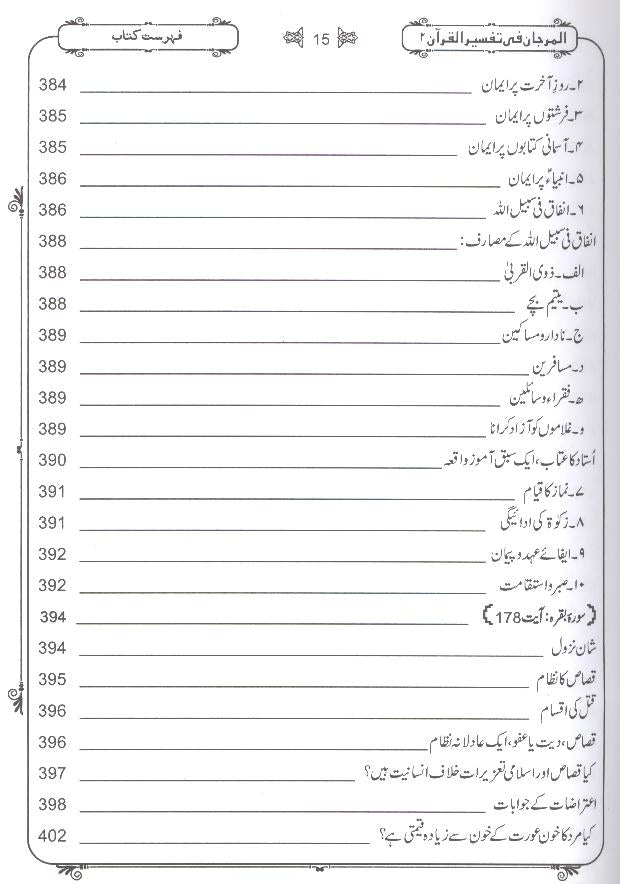 المرجان فی تفسیر القرآن ۲ 15 فہرست کتاب
۲۔روزِ آخرت پر ایمان 384
۳۔فرشتوں پر ایمان 385
۴۔آسمانی کتابوں پر ایمان 385
۵۔انبیاءؑ پر ایمان 386
۶۔انفاق فی سبیل اللہ 386
انفاق فی سبیل اللہ کے مصارف: 388
الف۔ذوی القربیٰ 388
ب۔یتیم بچے 388
ج۔نادار و مساکین 389
د۔مسافرین 389
ھ۔فقراء و سائلین 389
و۔غلاموں کو آزاد کرانا 389
اُستاد کا عتاب، ایک سبق آموز واقعہ 390
۷۔نماز کا قیام 391
۸۔زکوٰۃ کی ادائیگی 391
۹۔ایفائے عہد و پیمان 392
۱۰۔صبر و استقامت 392
﴿سورۂ بقرہ: آیت 178﴾ 394
شان نزول 394
قصاص کا نظام 395
قتل کی اقسام 396
قصاص، دیت یا عفو، ایک عادلانہ نظام 396
کیا قصاص اور اسلامی تعزیرات خلاف انسانیت ہیں؟ 397
اعتراضات کے جوابات 398
کیا مرد کا خون عورت کے خون سے زیادہ قیمتی ہے؟ 402